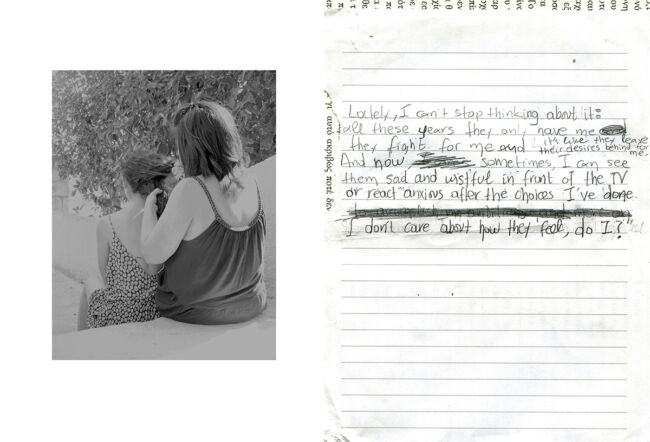 Lately, I can't stop thinking about it:
all these years they only have me
they fight for me and it's like they leave
their desires behind for
me.
And now sometimes, I can see
them sad and wistful in front of the TV
or react anxious after the choices I've done.
I don't care about how they feel, do I?
γι αυτό ακριβώς ποτέ δεν